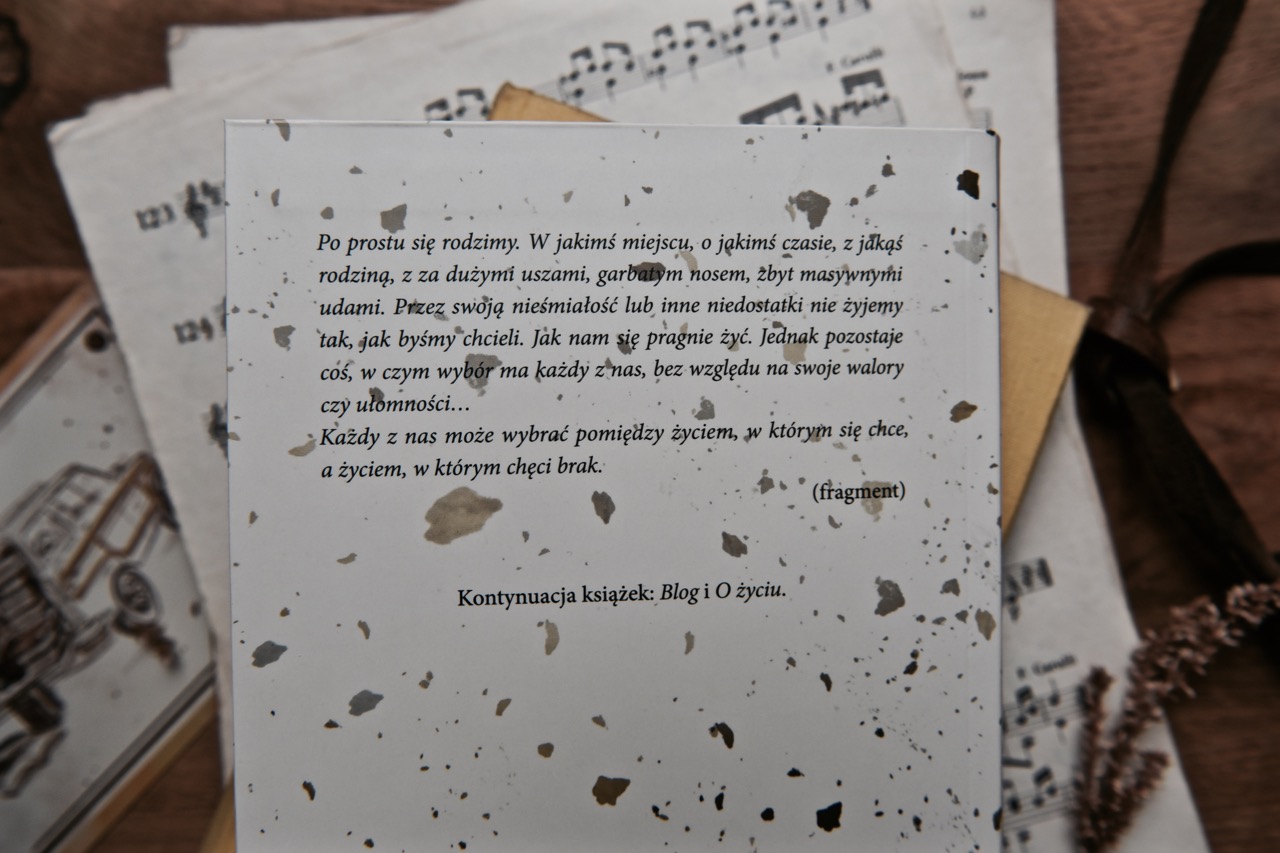 123
124
Po prostu się rodzimy. W jakimś miejscu, o jakimś czasie, z jakąś
rodziną, z za dużymi uszami, garbatym nosem, zbyt masywnymi
udami. Przez swoją nieśmiałość lub inne niedostatki nie żyjemy
tak, jak byśmy chcieli. Jak nam się pragnie żyć. Jednak pozostaje
coś, w czym wybór ma każdy z nas, bez względu na swoje walory
czy ułomności…
Każdy z nas może wybrać pomiędzy życiem, w którym się chce,
a życiem, w którym chęci brak.
(fragment)
Kontynuacja książek: Blog i O życiu.